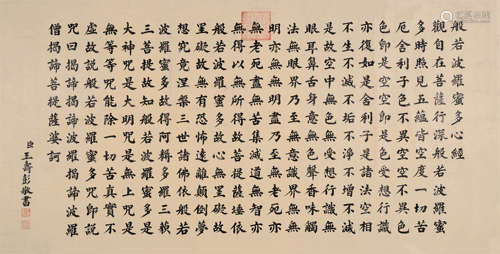 般若波羅蜜多心經
觀自在菩薩行深般若波羅蜜
多時照見五蘊皆空度一切苦
厄舍利子色不異空空不異色
色即是空空即是色受想行識
亦復如是舍利子是諸法空相
不生不滅不垢不淨不增不減
是故空中無色無受想行識無
眼耳鼻舌身意無色聲香味觸
法無眼界乃至無意識界無無
明亦無無明盡乃至無老死亦
無老死盡無苦集滅道無智亦
無得以無所得故菩提薩埵依
般若波羅蜜多故心無罣礙故
罣礙故無有恐怖遠離顛倒夢
想究竟涅槃三世諸佛依般若
波羅蜜多故得阿耨多羅三藐
三菩提故知般若波羅蜜多是
大神咒是大明咒是無上咒是
無等等咒能除一切苦真實不
虛故說般若波羅蜜多咒即說
咒曰揭諦揭諦波羅揭諦波羅
僧揭諦菩提薩婆訶
臣王壽彭敬書